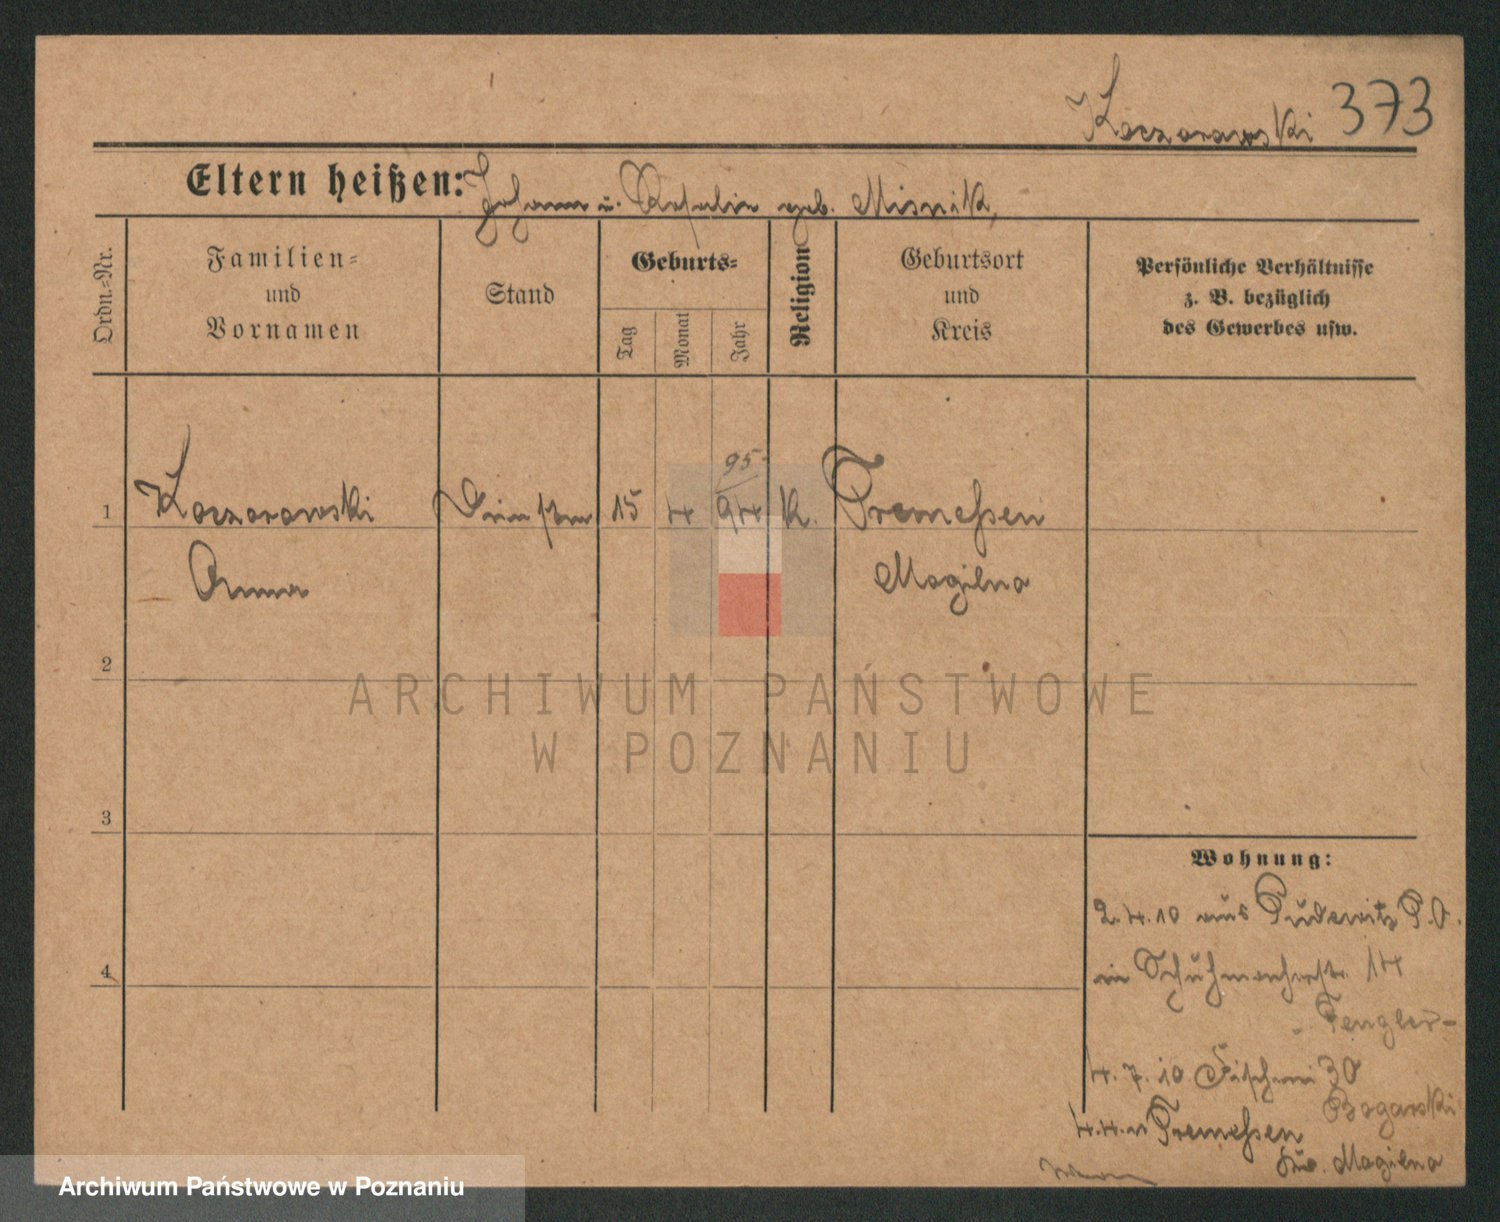 Koczorowski 373
Eltern heißen: Johann u. Rosalie geb. Misnik,
Ordn.-Nr.
Familien-
und
Vornamen
Stand
Geburts-
Tag
Monat
Jahr
Religion
Geburtsort
und
Kreis
Persönliche Verhältnisse
z. B. bezüglich
des Gewerbes usw.
95
1 Koczorowski 15 4 94 K. Tremessen
Anna Mogilno
2
3
4
Wohnung:
2.4.10 aus Pudewitz P.O.
in Schuhmacherstr. 14
Tengler-
4.7.10 Fischerei 30
Bogarski
4.4.11 Tremessen
Krs. Mogilno
ARCHIWUM PAŃSTWOWE
W POZNANIU
Archiwum Państwowe w Poznaniu